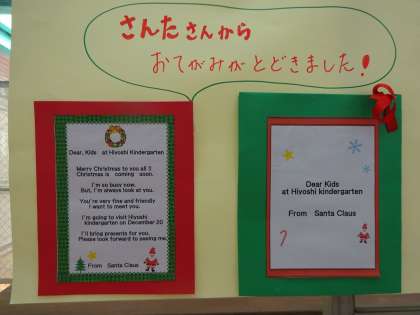 さんたさんから
おてがみがとどきました!
Dear, Kids at Hiyoshi Kindergarten
Merry Christmas to you all !!
Christmas is coming soon.
I'm so busy now.
But, I'm always look at you.
You're very fine and friendly
I want to meet you.
I'm going to visit Hiyoshi
kindergarten on December 20
I'll bring presents for you.
Please look forward to seeing me.
From Santa Claus
Dear Kids
at Hiyoshi kindergarten
From Santa Claus